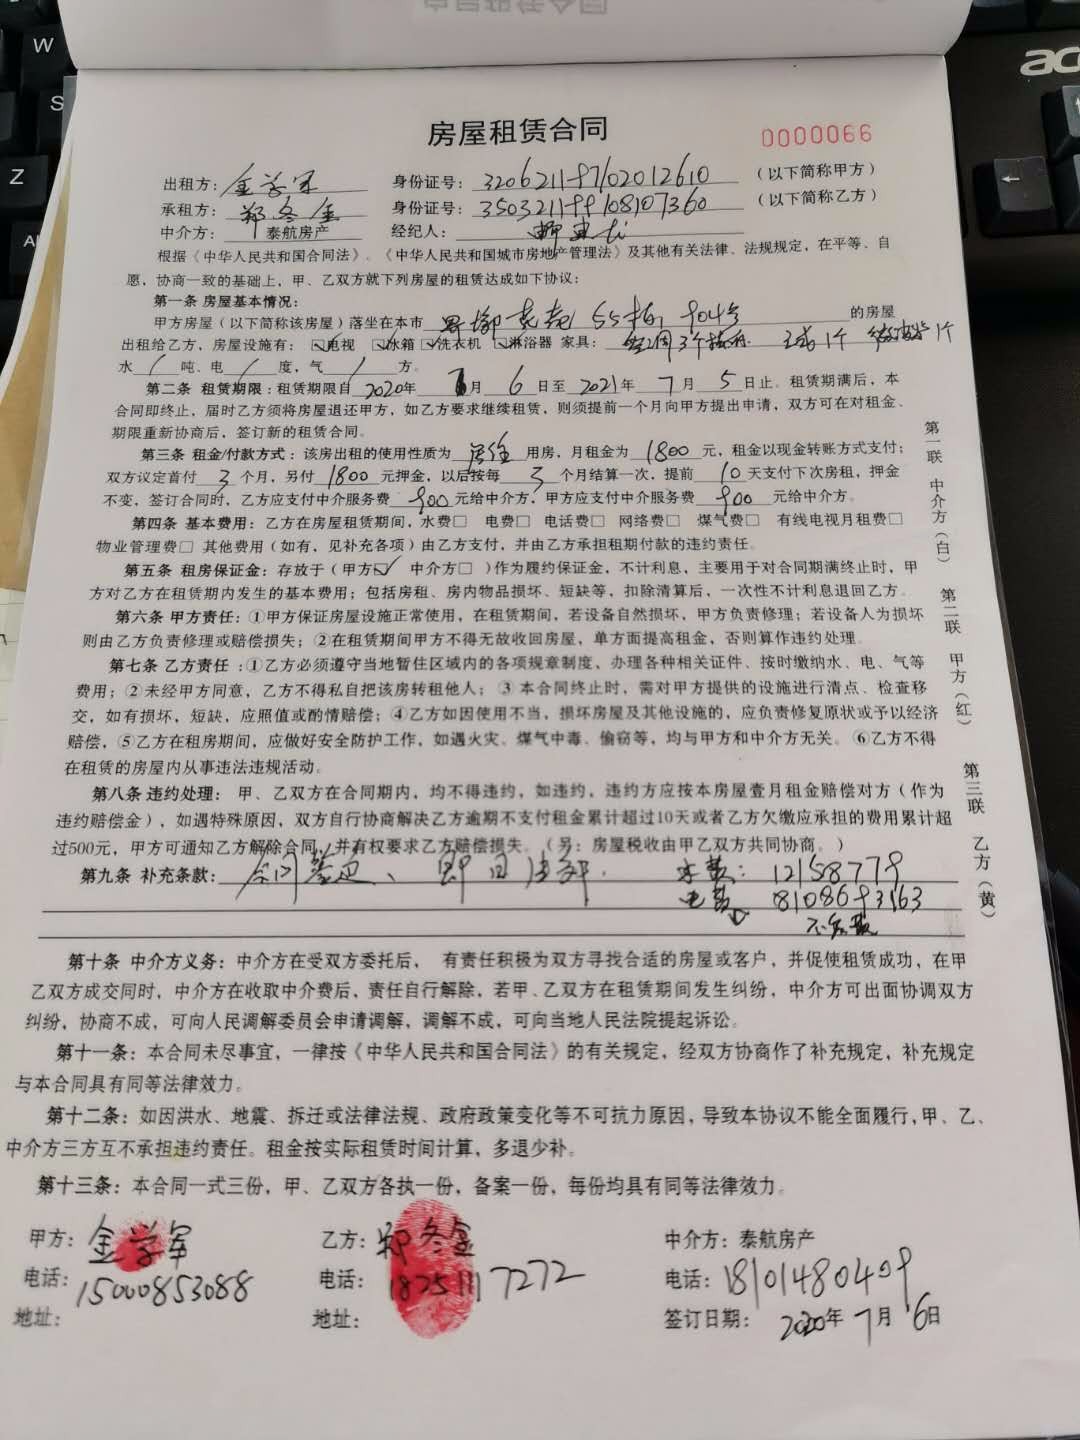 房屋租赁合同
0000066
出租方：金学军 身份证号：320621197102012610 （以下简称甲方）
承租方：郑冬金 身份证号：350321199108107360 （以下简称乙方）
中介方：泰航房产 经纪人：
根据《中华人民共和国合同法》、《中华人民共和国城市房地产管理法》及其他有关法律、法规规定，在平等、自
愿，协商一致的基础上，甲、乙双方就下列房屋的租赁达成如下协议：
第一条 房屋基本情况：
甲方房屋（以下简称该房屋）落坐在本市 55栋 904室 的房屋
出租给乙方，房屋设施有：☑电视 ☑冰箱 ☑洗衣机 ☑淋浴器 家具： 1个 1个
水 / 吨、电 / 度，气 / 方。
第二条 租赁期限：租赁期限自 2020年 7月 6 日至 2021年 7 月 5 日止。租赁期满后，本
合同即终止，届时乙方须将房屋退还甲方，如乙方要求继续租赁，则须提前一个月向甲方提出申请，双方可在对租金、
期限重新协商后，签订新的租赁合同。
第三条 租金/付款方式：该房出租的使用性质为 居住 用房，月租金为 1800 元，租金以现金转账方式支付；
双方议定首付 3 个月，另付 1800 元押金，以后按每 3 个月结算一次，提前 10 天支付下次房租，押金
不变，签订合同时，乙方应支付中介服务费 900 元给中介方，甲方应支付中介服务费 900 元给中介方。
第四条 基本费用：乙方在房屋租赁期间，水费□ 电费□ 电话费□ 网络费□ 煤气费□ 有线电视月租费□
物业管理费□ 其他费用（如有，见补充各项）由乙方支付，并由乙方承担租期付款的违约责任。
第五条 租房保证金：存放于（甲方☑ 中介方□ ）作为履约保证金，不计利息，主要用于对合同期满终止时，甲
方对乙方在租赁期内发生的基本费用；包括房租、房内物品损坏、短缺等，扣除清算后，一次性不计利息退回乙方。
第六条 甲方责任：①甲方保证房屋设施正常使用，在租赁期间，若设备自然损坏，甲方负责修理；若设备人为损坏
则由乙方负责修理或赔偿损失；②在租赁期间甲方不得无故收回房屋，单方面提高租金，否则算作违约处理。
第七条 乙方责任：①乙方必须遵守当地暂住区域内的各项规章制度，办理各种相关证件、按时缴纳水、电、气等
费用；②未经甲方同意，乙方不得私自把该房转租他人；③本合同终止时，需对甲方提供的设施进行清点、检查移
交，如有损坏，短缺，应照值或酌情赔偿；④乙方如因使用不当，损坏房屋及其他设施的，应负责修复原状或予以经济
赔偿，⑤乙方在租房期间，应做好安全防护工作，如遇火灾、煤气中毒、偷窃等，均与甲方和中介方无关。⑥乙方不得
在租赁的房屋内从事违法违规活动。
第八条 违约处理： 甲、乙双方在合同期内，均不得违约，如违约，违约方应按本房屋壹月租金赔偿对方（作为
违约赔偿金），如遇特殊原因，双方自行协商解决乙方逾期不支付租金累计超过10天或者乙方欠缴应承担的费用累计超
过500元，甲方可通知乙方解除合同，并有权要求乙方赔偿损失。（另：房屋税收由甲乙双方共同协商。）
第九条 补充条款：合同签定、即日 水费：12158779
电费 8108693163
第十条 中介方义务：中介方在受双方委托后， 有责任积极为双方寻找合适的房屋或客户，并促使租赁成功，在甲
乙双方成交同时，中介方在收取中介费后，责任自行解除，若甲、乙双方在租赁期间发生纠纷，中介方可出面协调双方
纠纷，协商不成，可向人民调解委员会申请调解，调解不成，可向当地人民法院提起诉讼。
第十一条：本合同未尽事宜，一律按《中华人民共和国合同法》的有关规定，经双方协商作了补充规定，补充规定
与本合同具有同等法律效力。
第十二条：如因洪水、地震、拆迁或法律法规、政府政策变化等不可抗力原因，导致本协议不能全面履行，甲、乙、
中介方三方互不承担违约责任。租金按实际租赁时间计算，多退少补。
第十三条：本合同一式三份，甲、乙双方各执一份，备案一份，每份均具有同等法律效力。
甲方：金学军 乙方：郑冬金 中介方：泰航房产
电话：15000853088 电话：18251117272 电话：18101480409
地址： 地址： 签订日期：2020年 7月 6日
第一联 中介方（白） 第二联 甲方（红） 第三联 乙方（黄）
W
S
Z
ac